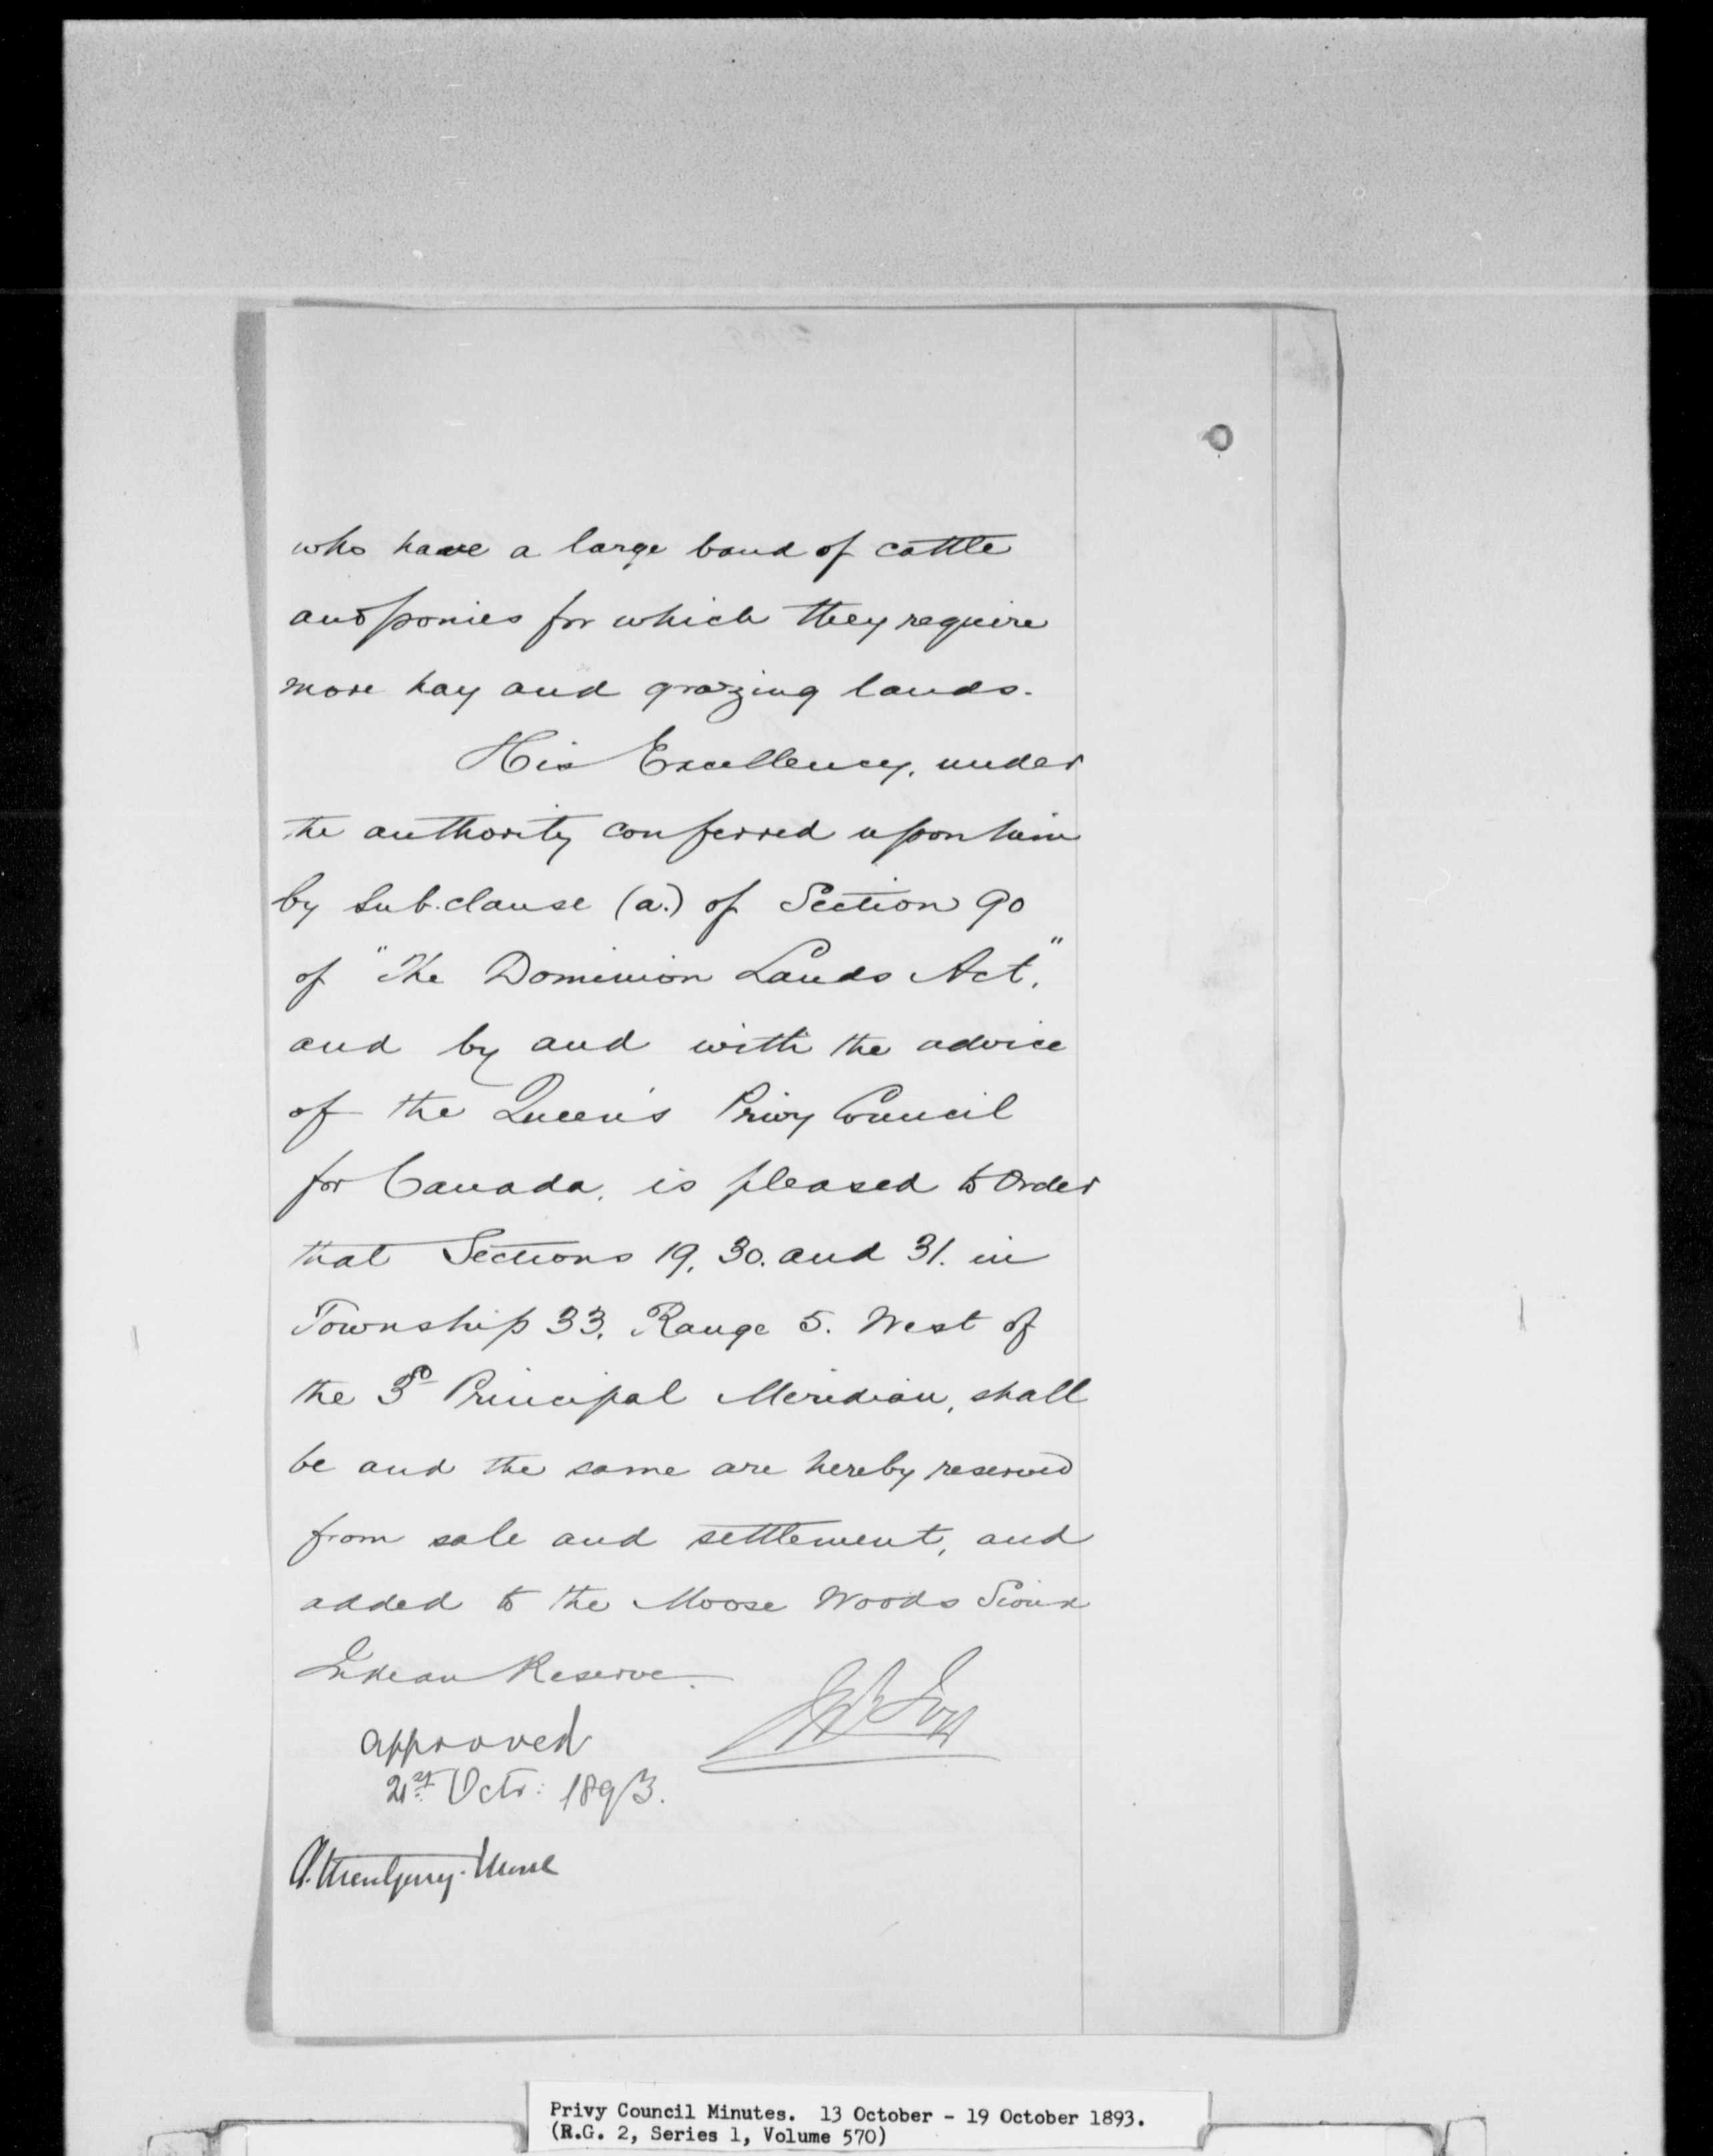 who have a large band of cattle
and ponies for which they require
more hay and grazing lands.
His Excellency, under
the authority conferred upon him
by sub.clause (a.) of Section 90
of "The Dominion Lands Act,"
and by and with the advice
of the Queen's Privy Council
for Canada, is pleased to Order
that Sections 19, 30. and 31. in
Township 33, Range 5. West of
the 3rd Principal Meridian, shall
be and the same are hereby reserved
from sale and settlement, and
added to the Moose Woods Sioux
Indian Reserve.
approved
21st Octr: 1893.
A. Montgomery-Moore
Privy Council Minutes. 13 October - 19 October 1893.
(R.G. 2, Series 1, Volume 570)